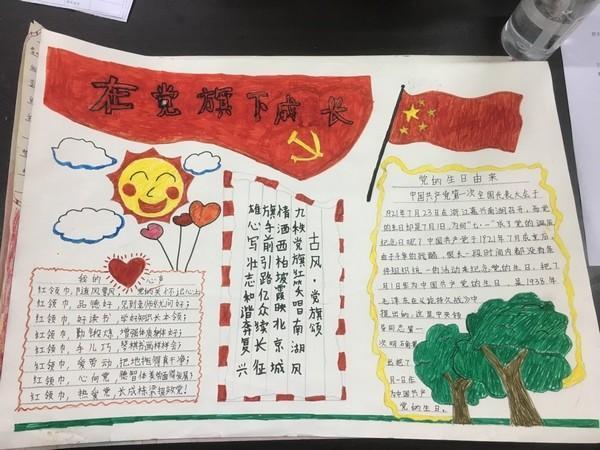 在党旗下成长
我的心声
红领巾，随风飘，党的关怀记心上
红领巾，品德好，见到老师先问好；
红领巾，好读书，学好知识长本领；
红领巾，勤锻炼，增强体质身体好；
红领巾，手儿巧，琴棋书画样样会；
红领巾，爱劳动，把地拖得真干净；
红领巾，心向党，德智体美劳
红领巾，热爱党，长成栋梁报效党！
古风·党旗颂
九秩党旗红笑唱南湖风
情洒西柏坡霞映北京城
旗手前引路亿众续长征
雄心写壮志和谐奔复兴
党的生日由来
中国共产党第一次全国代表大会于
1921年7月23日在浙江嘉兴南湖召开，而党
的生日却是7月1日，为何"七·一"成了党的诞辰
纪念日呢？中国共产党于1921年7月成立后，
由于斗争的残酷，很长一段时间内都没有条
件组织统一的活动来纪念党的生日，把7
月1日作为中国共产党的生日，是1938年
毛泽东在《论持久战》中
提出的，这是中央领
导同志第一
次明确
出把7
月1日作
为中国共产
党的生日。